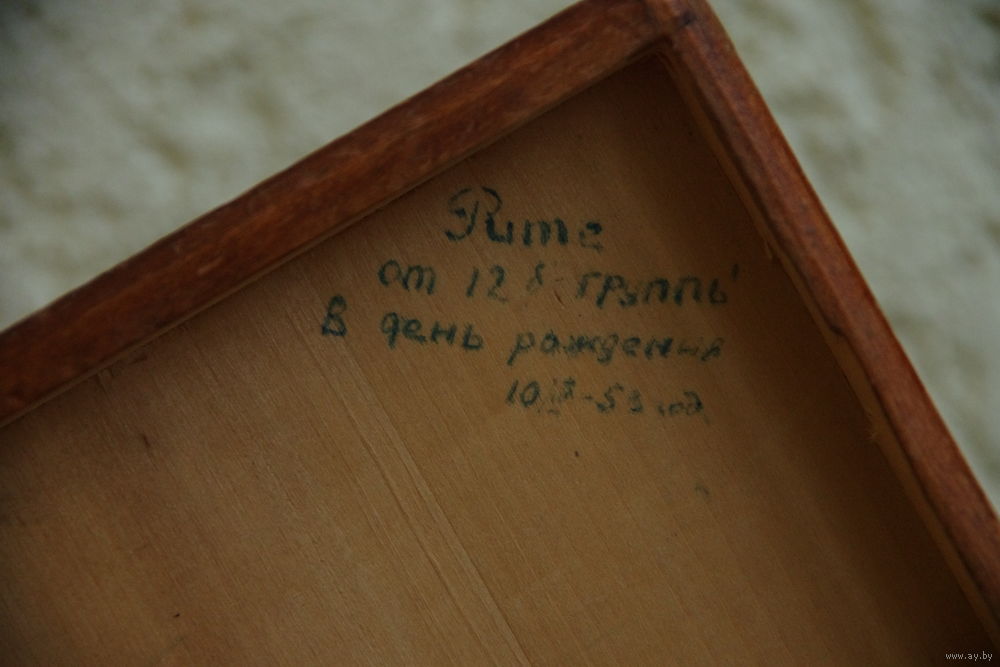 Рите
от 12 б группы
В день рождения
53 год
www.ay.by